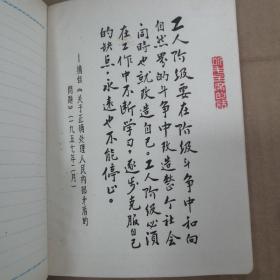 工人阶级要在阶级斗争中和向
自然界的斗争中改造整个社会
同时也就改造自己。工人阶级必须
在工作中不断学习，逐步克服自己
的缺点，永远也不能停止。
——摘自《关于正确处理人民内部矛盾的
问题》（一九五七年二月）